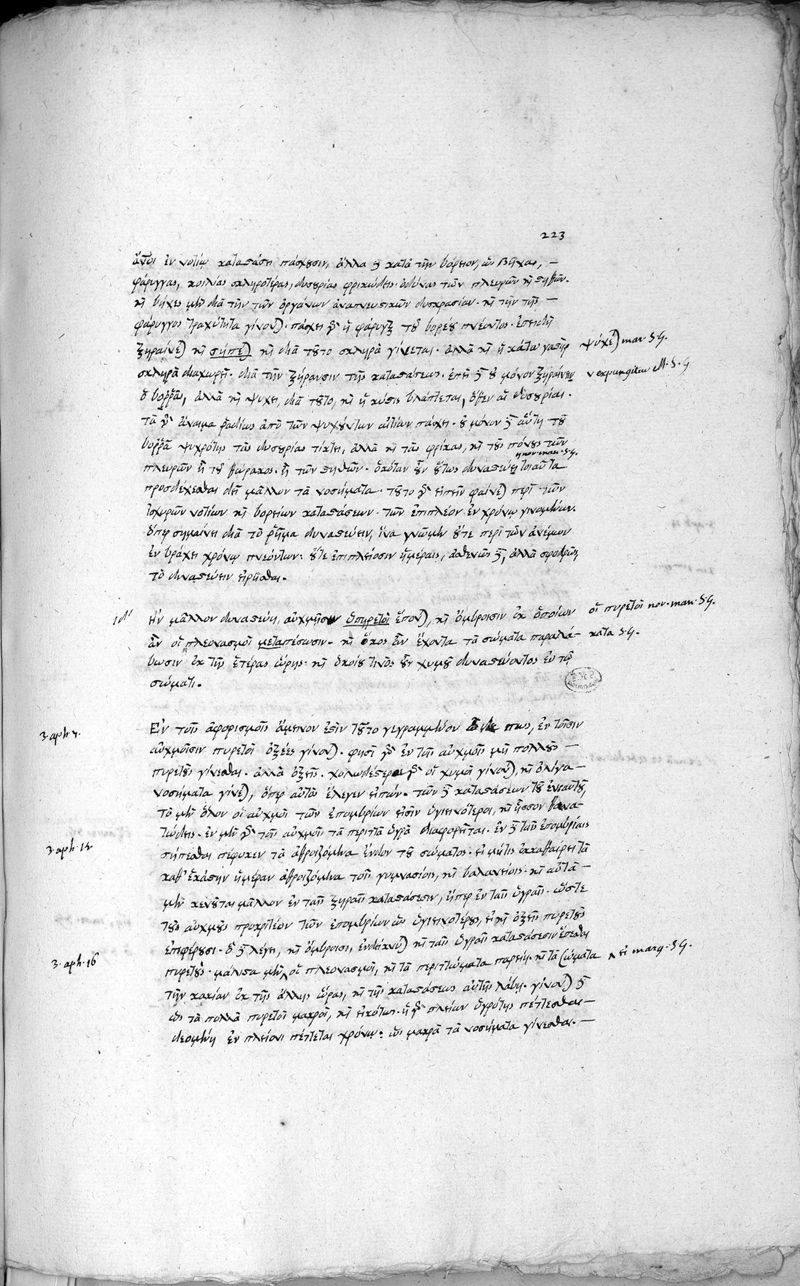 223
ἐν νοτίῳ καταστάσει πάσχουσιν, ἀλλὰ καὶ κατὰ τὴν βόρειον, ὡς βῆχας,
φάρυγγας, κοιλίας σκληροτέρας, δυσουρίας φρικώδεις, ὀδύνας τῶν πλευρῶν καὶ στηθῶν.
καὶ βῆχες μὲν διὰ τὴν τῶν ὀργάνων ἀναπνευστικῶν δυσκρασίαν. καὶ τὴν τῆς
φάρυγγος τραχύτητα γίνον). πάσχει γὰρ ἡ φάρυγξ τοῦ βορέου πνέοντος. ἐπειδὴ
ξηραίνε) καὶ σήπε) καὶ διὰ τοῦτο σκληρὰ γίνεται. ἀλλὰ καὶ ἡ κατὰ γαστέρ ψύχε) mar. SG.
σκληρὰ διαχωρεῖ. διὰ τὴν ξήρανσιν τῆς καταστάσεως. ἐπεὶ δὲ οὐ μόνον ξηραίνει ν expungitur M. S. G
ὁ βοῤῥᾶς, ἀλλὰ καὶ ψύχει, διὰ τοῦτο, καὶ ἡ κύστις βλάπτεται, ὅθεν αἱ δυσουρίαι.
τὰ γὰρ ἄναιμα ῥαδίως ἀπὸ τῶν ψυχόντων αἰτίων πάσχει. οὐ μόνον δὲ αὕτη τοῦ
βοῤῥᾶ ψυχρότης τὰς δυσουρίας τίκτει, ἀλλὰ καὶ τὰς φρίκας, καὶ τοὺς πόνους τῶν
πλευρῶν ἢ τοῦ θώρακος. ἢ τῶν στηθῶν. ὁκόταν οὖν οὕτως δυναστεύῃ τοιαῦτα
προσδέχεσθαι δεῖ μᾶλλον τὰ νοσήματα. τοῦτο γὰρ εἰπεῖν φαίνε) περὶ τῶν
ἰσχυρῶν νοτίων καὶ βορείων καταστάσεων. τῶν ἐπιπλέον ἐν χρόνῳ γινομένων.
ὅπερ σημαίνει διὰ τὸ ῥῆμα δυναστεύειν, ἵνα γνῶμεν οὔτε περὶ τῶν ἀνέμων
ἐν βραχεῖ χρόνῳ πνεόντων. οὔτε ἐπιπλείοσιν ἡμέραις, ἀσθενῶν δὲ, ἀλλὰ σφοδρῶν
τὸ δυναστεύειν εἰρῆσθαι.
ιδ' Ην μᾶλλον δυναστεύῃ, αὐχμοῖσιν ὁπυρετοὶ ἕπον), καὶ ὄμβροισιν ἐκ ὁποίων οἱ πυρετοὶ nov. mar. SG.
ἂν οἱ πλεονασμοὶ μεταπέσωσιν. καὶ ὅκως ἂν ἔχοντα τὰ σώματα παραλά- κατα SG.
βωσιν ἐκ τῆς ἑτέρας ὥρης. καὶ ὁκοίου τινὸς οὖν χυμοῦ δυναστεύοντος ἐν τῷ
σώματι.
3. aph. 7. Εν τοῖς ἀφορισμοῖς ἄμεινον ἐστὶν τοῦτο γεγραμμένον πως, ἐν τοῖσιν
αὐχμοῖσιν πυρετοὶ ὀξέες γίνον). φησὶ γὰρ ἐν τοῖς αὐχμοῖς μὴ πολλοὺς
πυρετοὺς γίνεσθαι. ἀλλὰ ὀξεῖς. χολωδέστεροι γὰρ οἱ χυμοὶ γίνον), καὶ ὀλίγα
νοσήματα γίνε), ὅπερ αὐτὸς ἔλεγεν εἰπών. τῶν δὲ καταστάσεων τοῦ ἐνιαυτοῦ,
τὸ μὲν ὅλον οἱ αὐχμοὶ τῶν ἐπομβριῶν εἰσὶν ὑγιεινότεροι, καὶ ἧσσον θανα-
τώδεις. ἐν μὲν γὰρ τοῖς αὐχμοῖς τὰ περιττὰ ὑγρὰ διαφορεῖται. ἐν δὲ ταῖς ἐπομβρίαις
3. aph. 15 σήπεσθαι πέφυκεν τὰ ἀθροιζόμενα ἔνδον τοῦ σώματος. εἰ μή τις ἐκκαθαίρει τὰ
καθ' ἑκάστην ἡμέραν ἀθροιζόμενα τοῖς γυμνασίοις, καὶ βαλανείοις. καὶ αὐτὰ
μὲν κενοῦται μᾶλλον ἐν ταῖς ξηραῖς καταστάσεσιν, ἤπερ ἐν ταῖς ὑγραῖς. ὥστε
τοὺς αὐχμοὺς προκριτέον τῶν ἐπομβριῶν ὡς ὑγιεινοτέρους, εἰ καὶ ὀξεῖς πυρετοὺς
ἐπιφέρουσι. ὃ δὲ λέγει, καὶ ὄμβροισι, ἐνδείκνυ) καὶ ταῖς ὑγραῖς καταστάσεσιν ἕπεσθαι
3. aph. 16 πυρετούς. μάλιστα μὲν ʌ οἱ πλεονασμοὶ, καὶ τὰ περιττώματα παρείη καὶ τὰ σώματα ʌ εἰ marg. SG.
τὴν κακίαν ἐκ τῆς ἄλλης ὥρας, καὶ τῆς καταστάσεως αὐτῆς λάβῃ. γίνον) δὲ
ὡς τὰ πολλὰ πυρετοὶ μακροὶ, καὶ εἰκότως. ἡ γὰρ πλείων ὑγρότης πέττεσθαι
δεομένη ἐν πλείονι πέττεται χρόνῳ. ὡς μακρὰ τὰ νοσήματα γίνεσθαι.